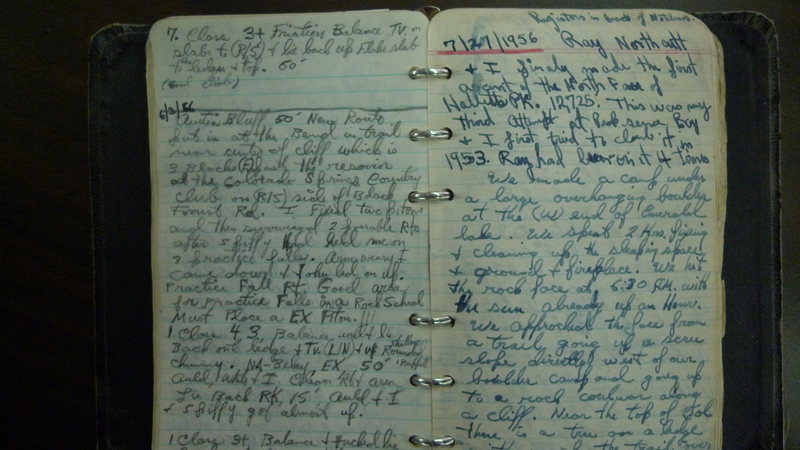 7. Class 3+ Friction Balance Tv. on
slabs to (R/S) & lie back up Flake slab
to ledges & top. 60'
6/3/56
Austin Bluff 50' New Route
put in at the Bend in trail
near center of cliff which is
3 Blocks (E) of the
at the Colorado Springs Country
Club on (R/S) side of Black
Forest Rd. I Fixed two pitons
and then 2
after Spiffy Had held me on
3 practice falls. Army
came down & John led on up.
Practice Fall Rt. Good area
for Practice Falls in a Rock School
Must Place a EX Piton.!!!
1. Class 4, 3, Balance
Back on ledge & Tv. (L/N) & up
Chimney. No Belay, EX, 50'
Auld, & I, Rt area
Lie Back Rt, 15', Auld & I
& Spiffy got almost up.
1 Class 3+, Balance & lie
Registors in back of
7/27/1956 Ray Northcutt
& I finaly made the first
ascent of the North Face of
Halletts PK. 12725. This was my
third attempt at
& I first tried to climb it in
1953. Ray had been on it 4 Times
We made a camp under
a large overhanging boulder
at the (W) end of Emerald
lake. We spent 2 Hrs. fixing
& cleaning up the sleeping space
& ground & fireplace. We hit
the rock face at 6:30 AM. with
the sun already up an Hour.
We approched the face from
a trail going up a scree
slope directly west of our
boulder camp and going up
to a rock along
a cliff. Near the top of
there is a tree on a ledge
the trail over